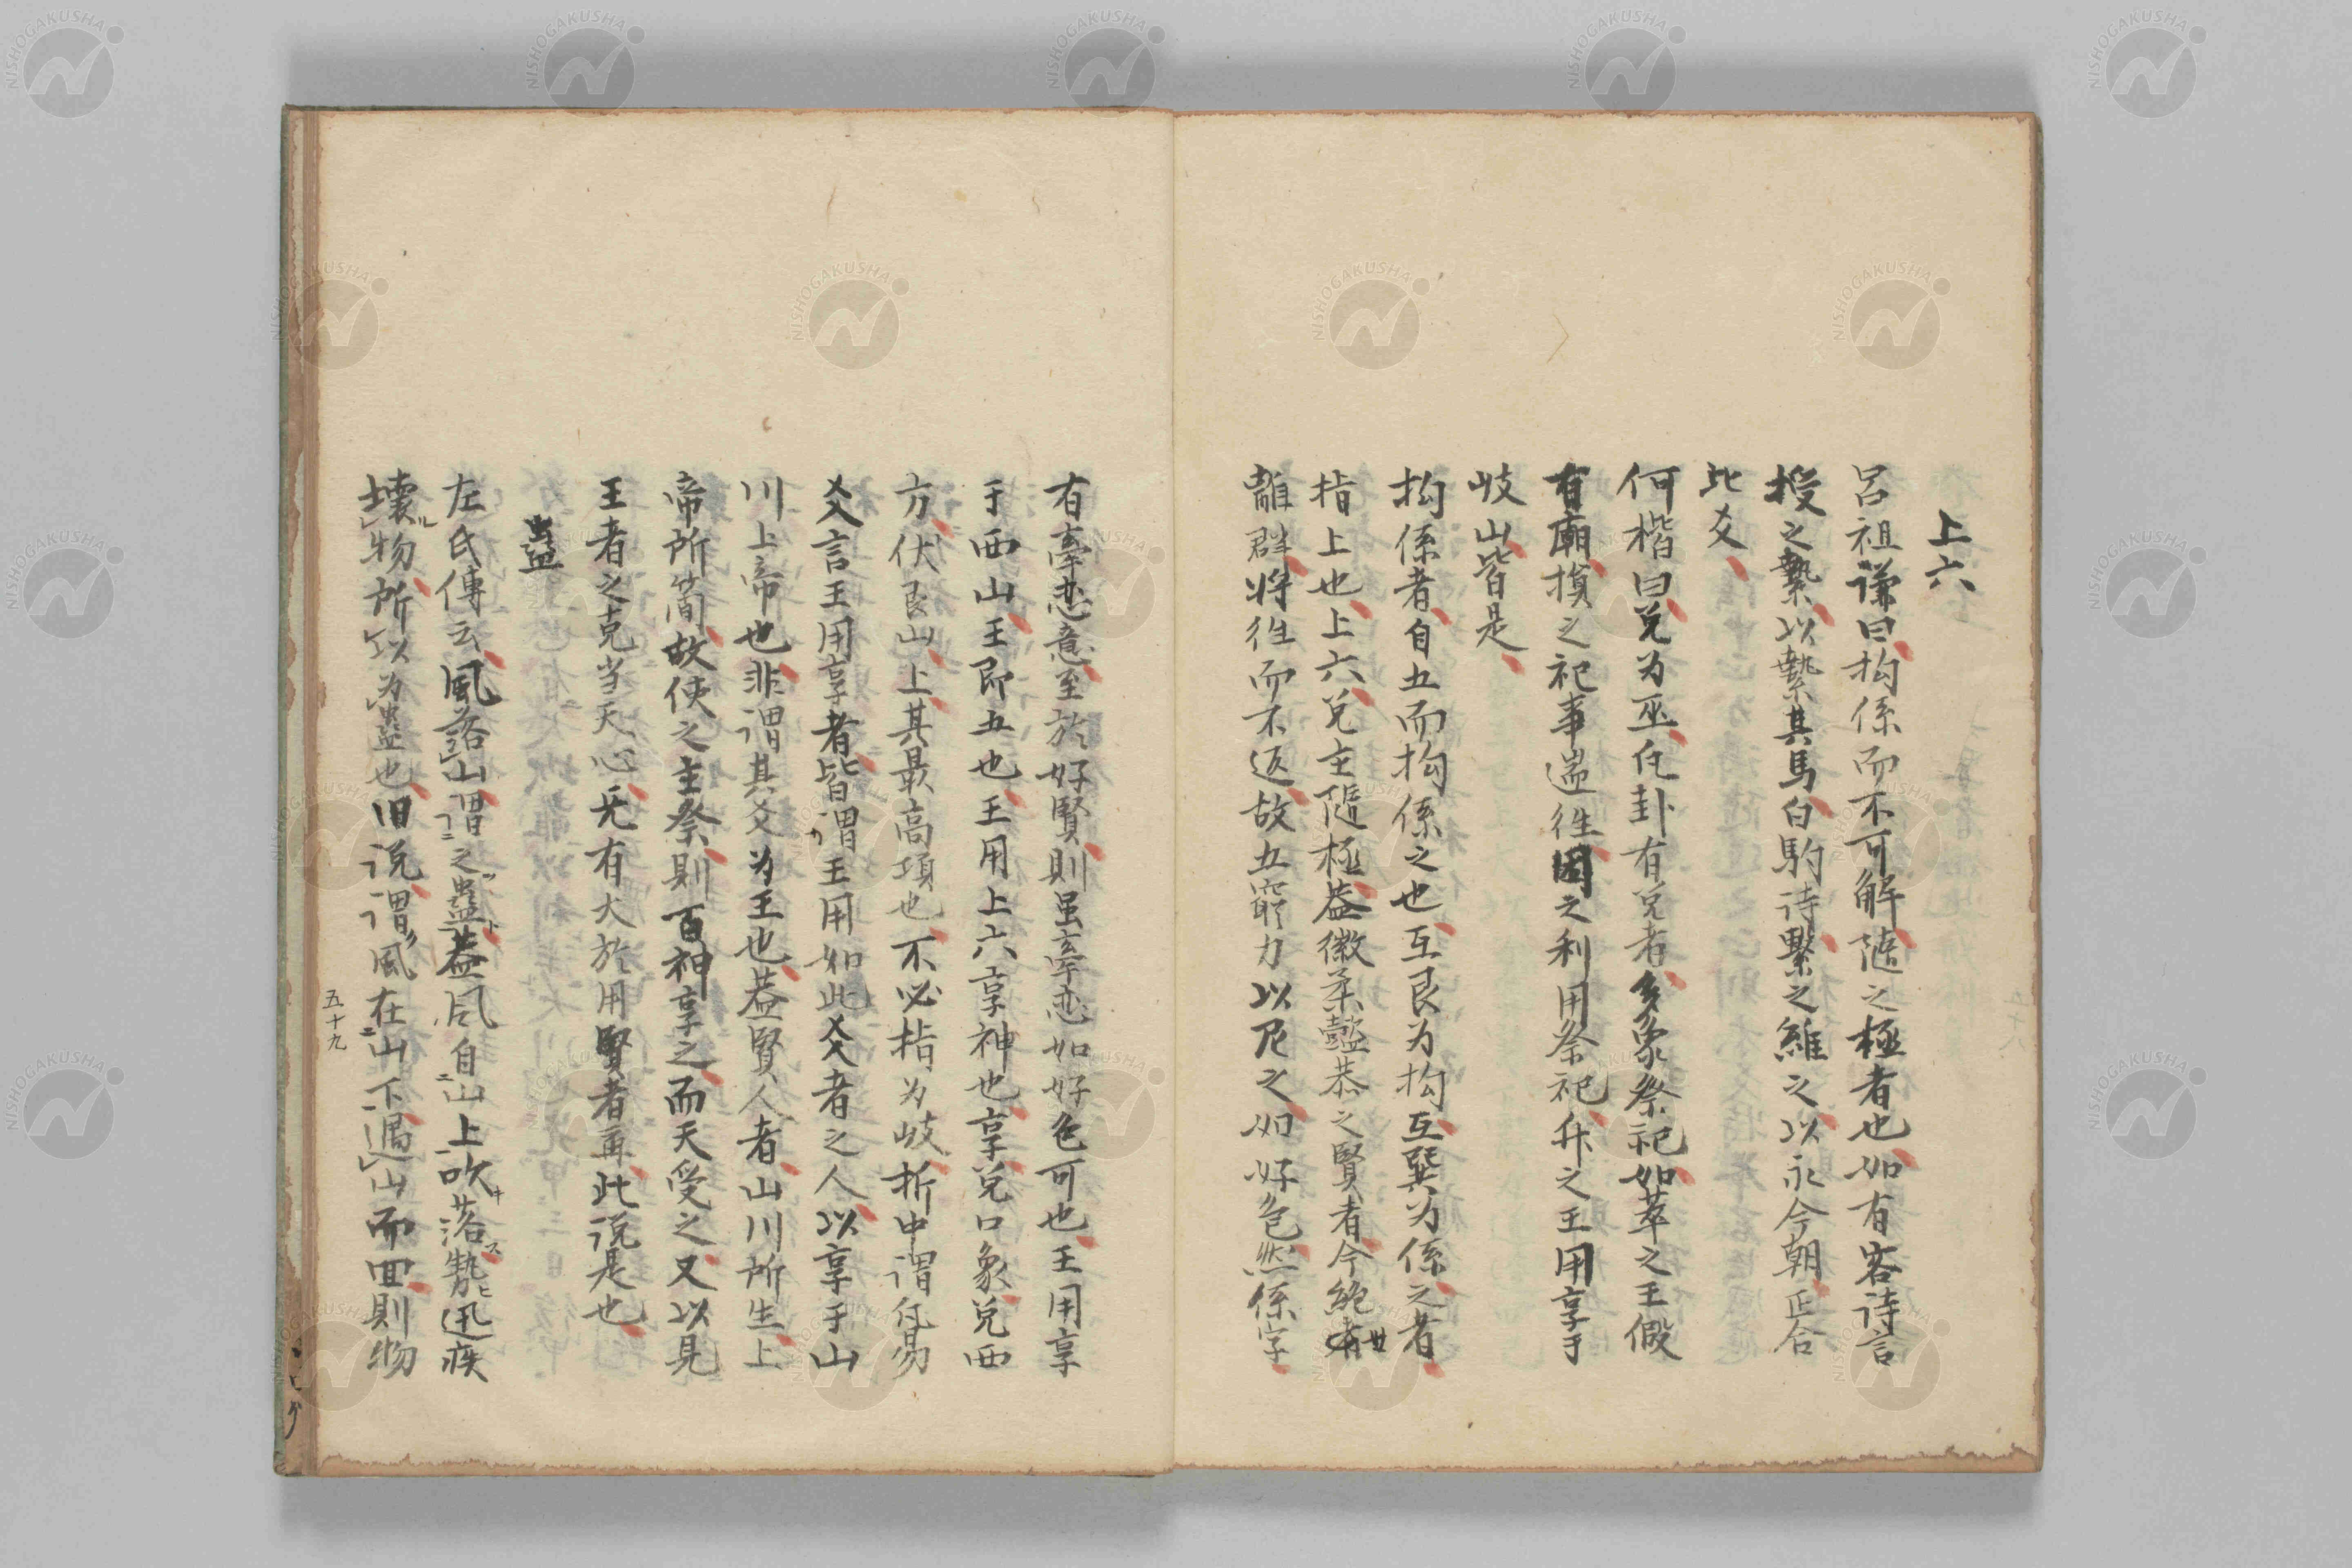 上六
呂祖謙曰拘係而不可解隨之極者也如有客詩言
授之縶以縶其馬白駒詩縶之維之以永今朝正合
此爻
何楷曰兑为巫凡卦有兑者多象祭祀如萃之王假
有廟損之祀事遄往困之利用祭祀升之王用享于
岐山皆是
拘係者自五而拘係之也互艮为拘互巽为係之者
指上也上六兑主隨極葢徽柔懿恭之賢者今絶世
離群将往而不返故五窮力以尼之如好色然係字
有牽恋意至於好賢則虽牽恋如好色可也王用享
于西山王即五也王用上六享神也享兑口象兑西
方伏艮山上其最高項也不必指为岐折中謂凡易
爻言王用享者皆謂王用如此爻者之人以享于山
川上帝也非謂其爻为王也葢賢人者山川所生上
帝所简故使之主祭則百神享之而天受之又以見
王者之克当天心无有大於用賢者再此说是也
蠱
左氏傳云風落山謂之蠱葢風自山上吹落勢迅疾
壊物所以为蠱也旧说謂風在山下遇山而回則物
五十九
NISHOGAKUSHA